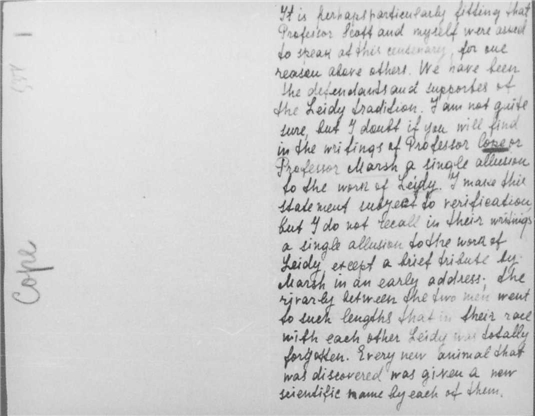 Cope
It is perhaps particularly fitting that
Professor Scott and myself were asked
to speak at this centenary, for one
reason above others. We have been
the defendants and supporters of
the Leidy tradition. I am not quite
sure, but I doubt if you will find
in the writings of Professor Cope or
Professor Marsh a single allusion
to the work of Leidy. I make this
statement subject to verification,
but I do not recall in their writings
a single allusion to the work of
Leidy except a brief tribute by
Marsh in an early address; the
rivarly between the two men went
to such lengths that in their race
with each other Leidy was totally
forgotten. Every new animal that
was discovered was given a new
scientific name by each of them.